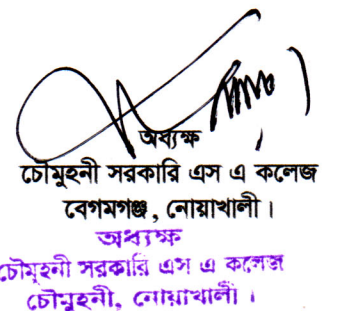 অধ্যক্ষ
চৌমুহনী সরকারি এস এ কলেজ
বেগমগঞ্জ , নোয়াখালী ।
অধ্যক্ষ
চৌমুহনী সরকারি এস এ কলেজ
চৌমুহনী, নোয়াখালী ।